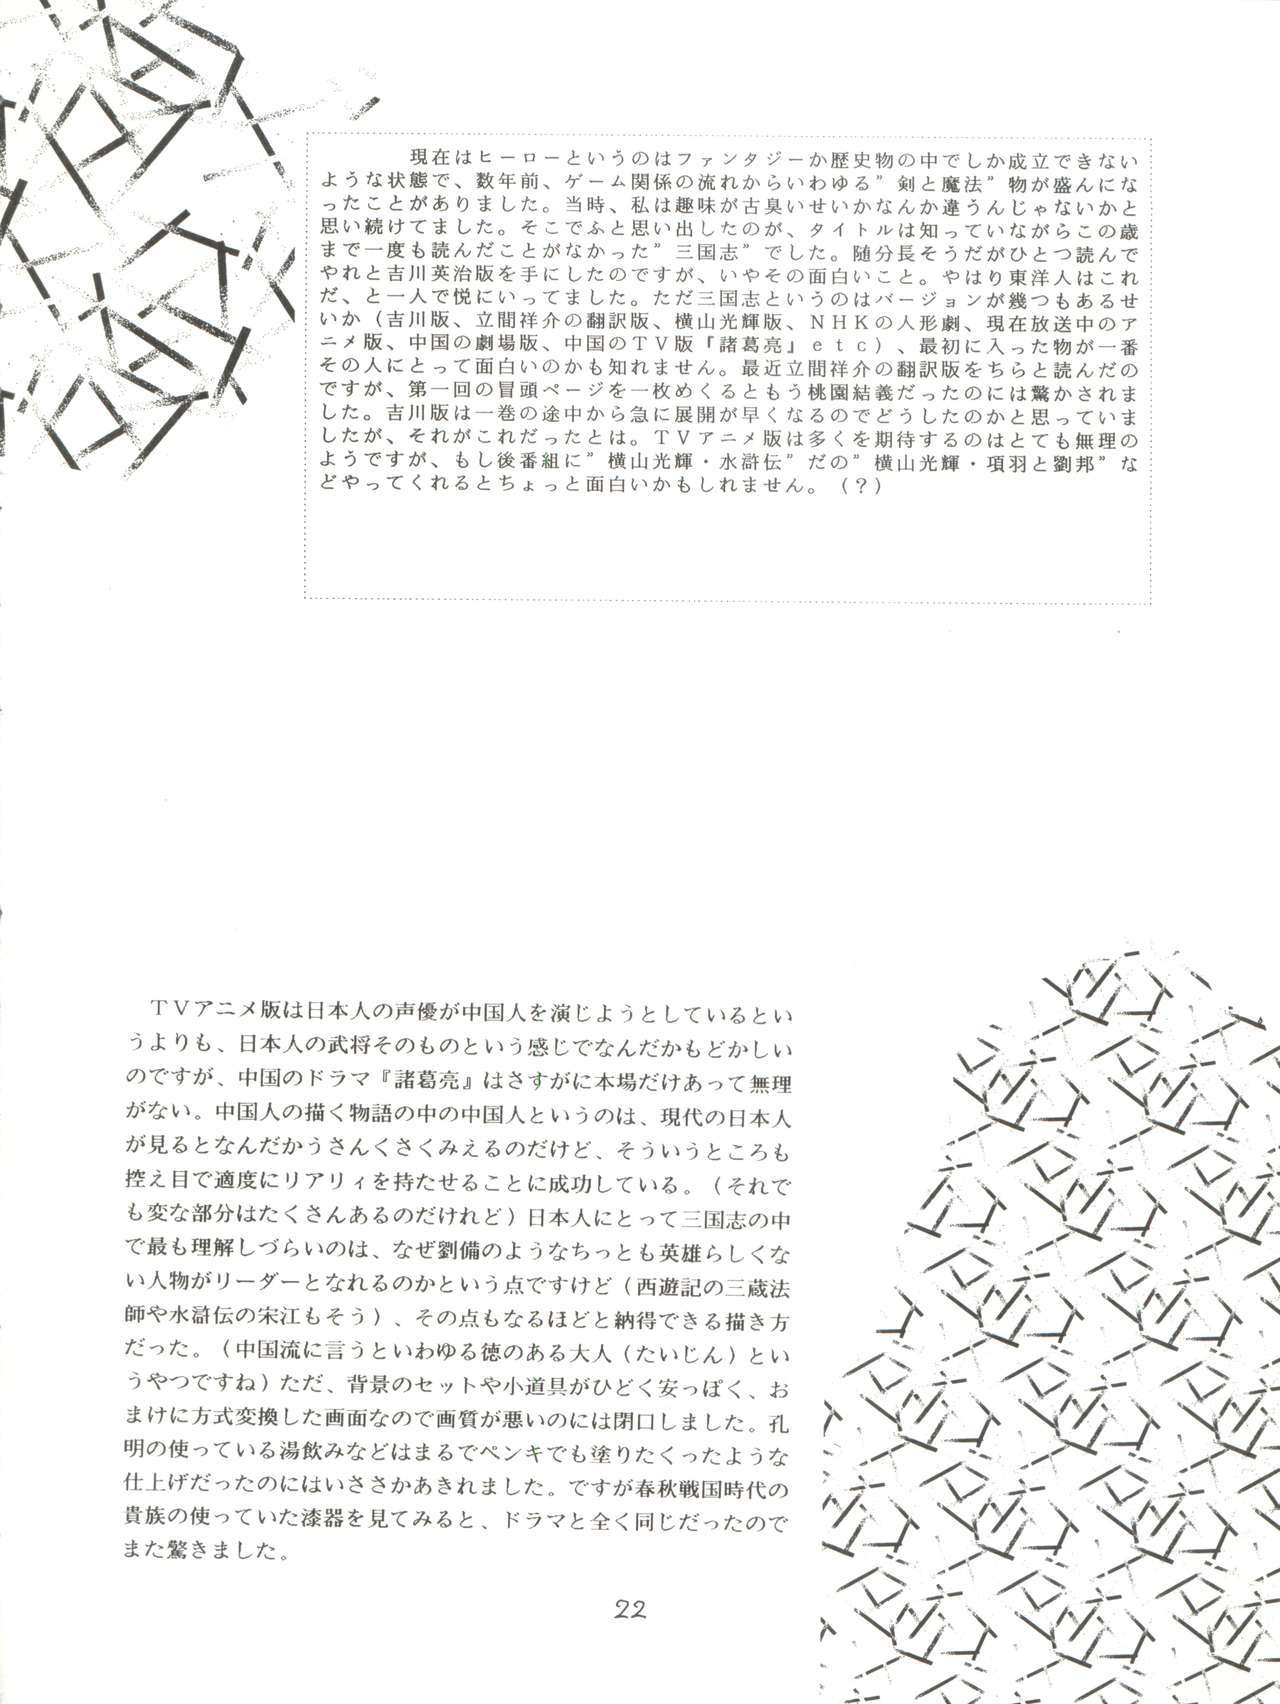 現在はヒーローというのはファンタジーか歴史物の中でしか成立できない
ような状態で、数年前、ゲーム関係の流れからいわゆる”剣と魔法”物が盛んにな
ったことがありました。当時、私は趣味が古臭いせいかなんか違うんじゃないかと
思い続けてました。そこでふと思い出したのが、タイトルは知っていながらこの歳
まで一度も読んだことがなかった”三国志”でした。随分長そうだがひとつ読んで
やれと吉川英治版を手にしたのですが、いやその面白いこと。やはり東洋人はこれ
だ、と一人で悦にいってました。ただ三国志というのはバージョンが幾つもあるせ
いか（吉川版、立間祥介の翻訳版、横山光輝版、ＮＨＫの人形劇、現在放送中のア
ニメ版、中国の劇場版、中国のＴＶ版『諸葛亮』ｅｔｃ）、最初に入った物が一番
その人にとって面白いのかも知れません。最近立間祥介の翻訳版をちらと読んだの
ですが、第一回の冒頭ページを一枚めくるともう桃園結義だったのには驚かされま
した。吉川版は一巻の途中から急に展開が早くなるのでどうしたのかと思っていま
したが、それがこれだったとは。ＴＶアニメ版は多くを期待するのはとても無理の
ようですが、もし後番組に”横山光輝・水滸伝”だの”横山光輝・項羽と劉邦”な
どやってくれるとちょっと面白いかもしれません。（？）
ＴＶアニメ版は日本人の声優が中国人を演じようとしているとい
うよりも、日本人の武将そのものという感じでなんだかもどかしい
のですが、中国のドラマ『諸葛亮』はさすがに本場だけあって無理
がない。中国人の描く物語の中の中国人というのは、現代の日本人
が見るとなんだかうさんくさくみえるのだけど、そういうところも
控え目で適度にリアリィを持たせることに成功している。（それで
も変な部分はたくさんあるのだけれど）日本人にとって三国志の中
で最も理解しづらいのは、なぜ劉備のようなちっとも英雄らしくな
い人物がリーダーとなれるのかという点ですけど（西遊記の三蔵法
師や水滸伝の宋江もそう）、その点もなるほどと納得できる描き方
だった。（中国流に言うといわゆる徳のある大人（たいじん）とい
うやつですね）ただ、背景のセットや小道具がひどく安っぽく、お
まけに方式変換した画面なので画質が悪いのには閉口しました。孔
明の使っている湯飲みなどはまるでペンキでも塗りたくったような
仕上げだったのにはいささかあきれました。ですが春秋戦国時代の
貴族の使っていた漆器を見てみると、ドラマと全く同じだったので
また驚きました。
22